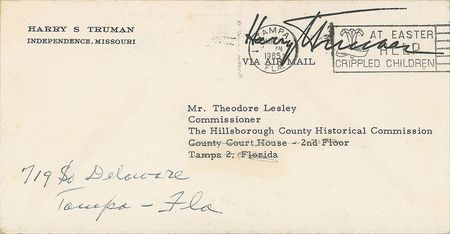 HARRY S TRUMAN
INDEPENDENCE, MISSOURI
Harry Truman
TAMPA
1965
FLA.
AT EASTER
HELP
CRIPPLED CHILDREN
VIA AIR MAIL
Mr. Theodore Lesley
Commissioner
The Hillsborough County Historical Commission
County Court House - 2nd Floor
Tampa 2, Florida
719 So Delaware
Tampa - Fla